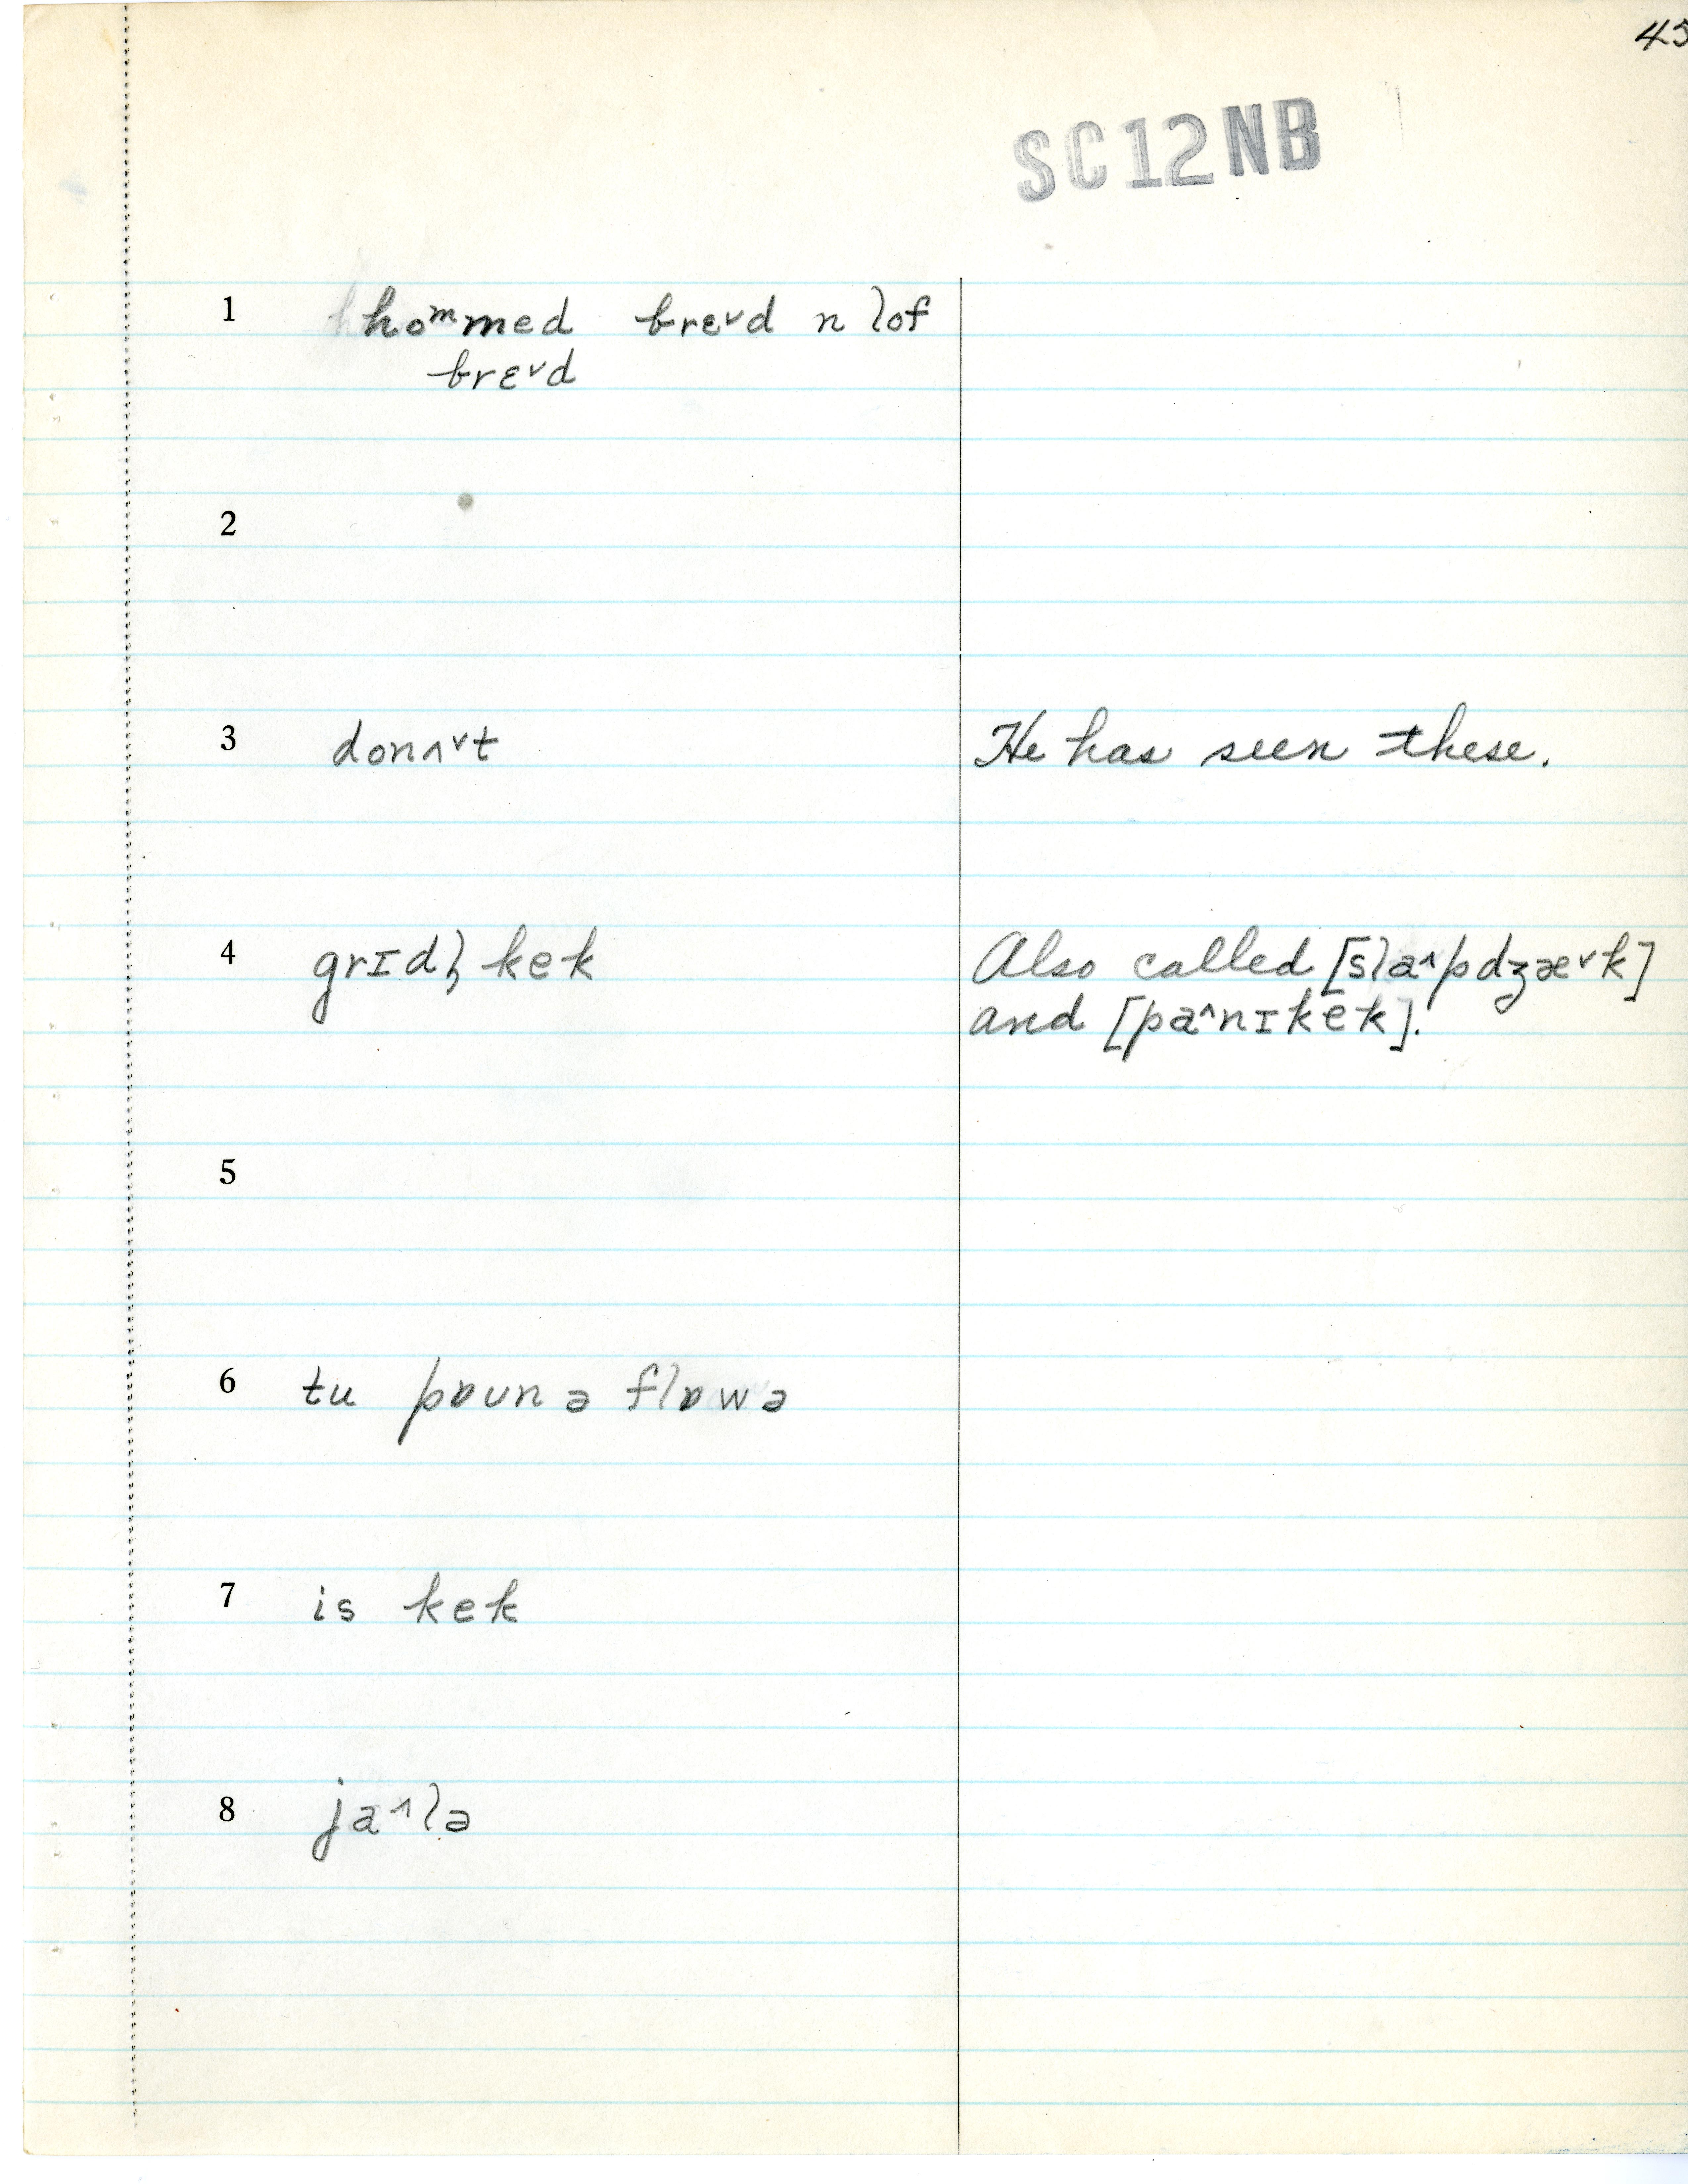 45
SC12NB
1 hoᵐmed brɛ˅d n lof
brɛ˅d
2
3 donʌ˅t He has seen these.
4 grɪdl̩ kek Also called [slaˆpdʒæ˅k]
and [paˆnɪkek].
5
6 tu pɒun ə flɒwə
7 is kek
8 jaˆlə